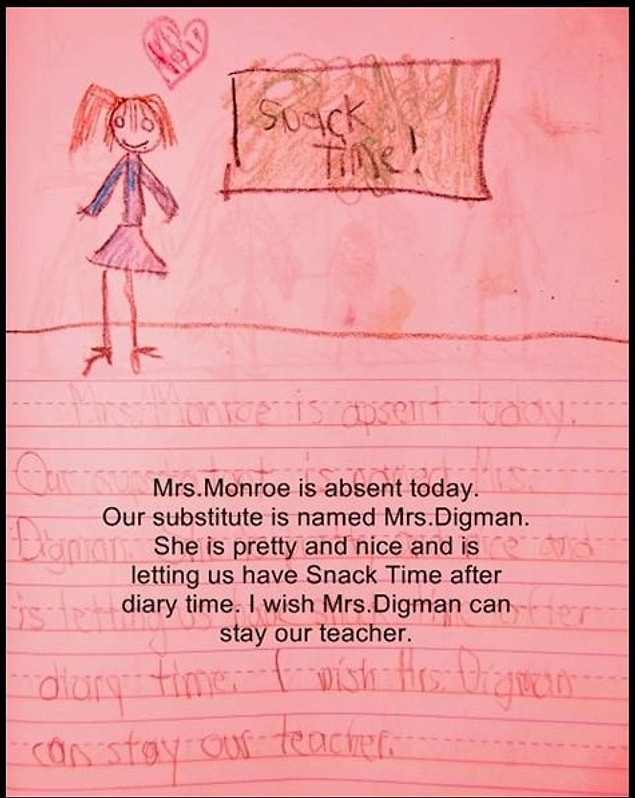 Snack
Time!
Mrs. Monroe is apsent today.
Mrs.Monroe is absent today.
Our substitute is named Mrs.Digman.
She is pretty and nice and is
letting us have Snack Time after
diary time. I wish Mrs.Digman can
stay our teacher.
Our is named Mrs.
Digman. nice and
is letting us
diary time. I wish Mrs. Digman
can stay our teacher.